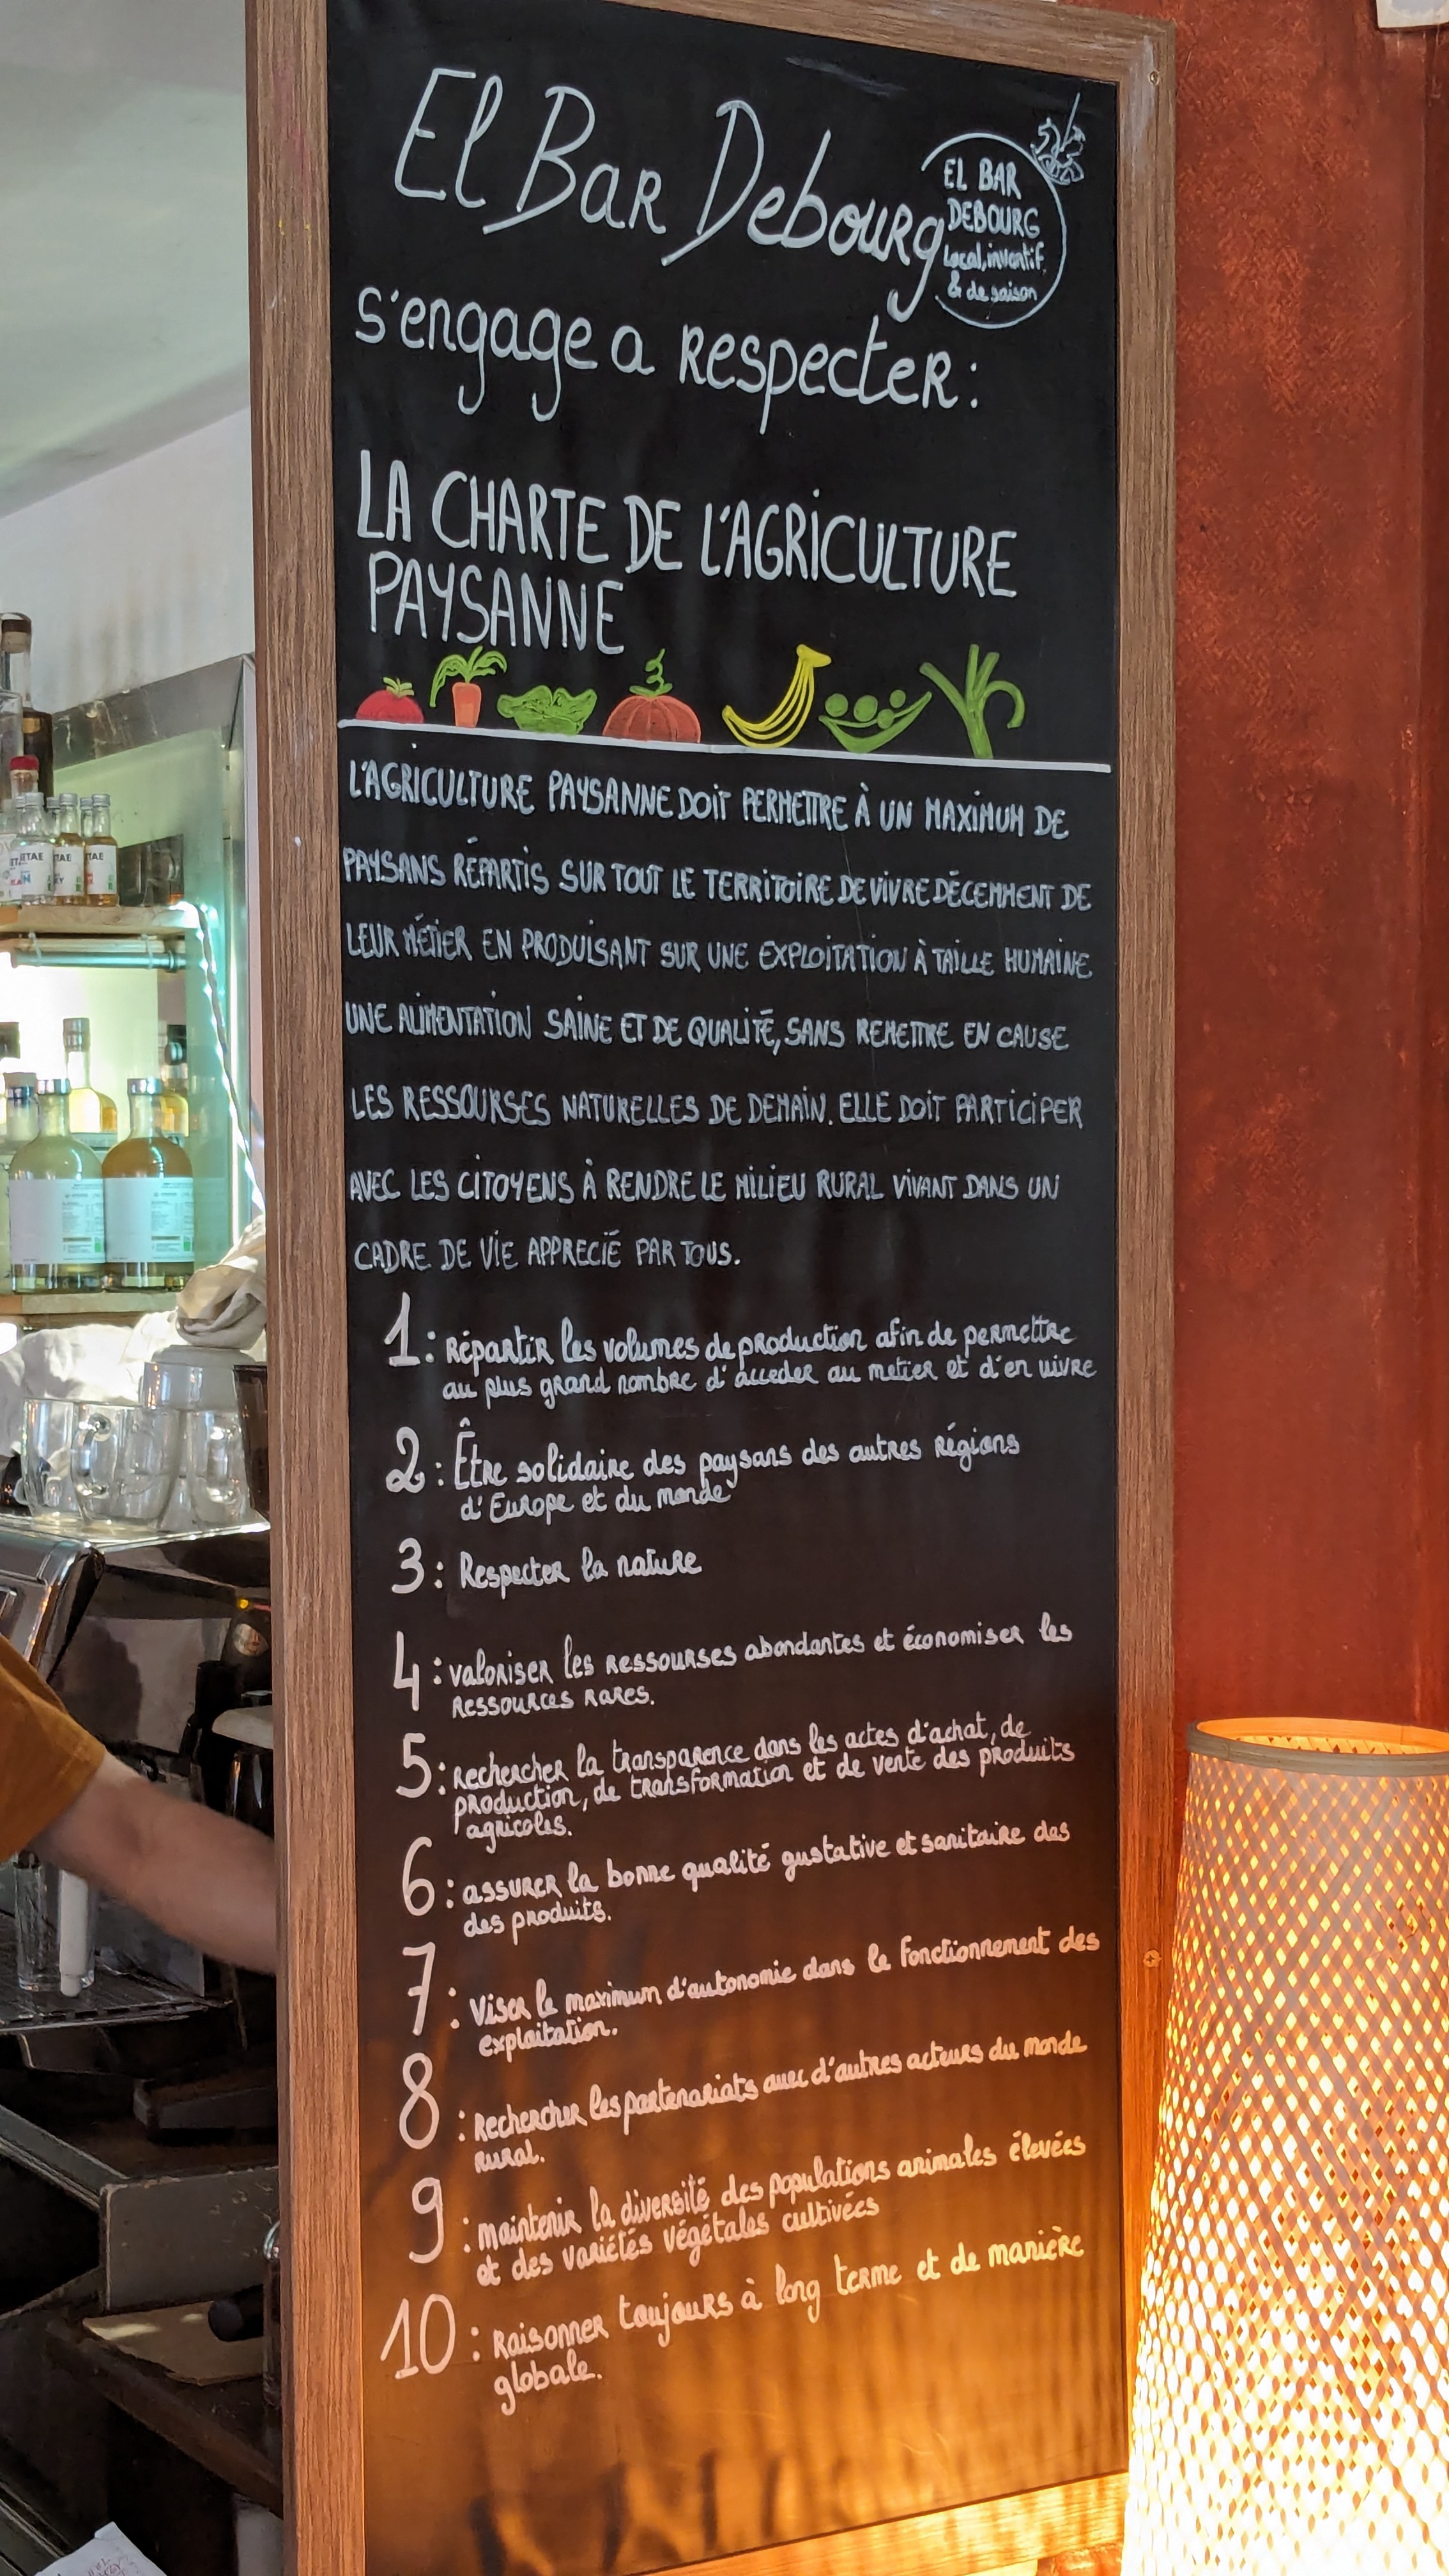 El Bar Debourg
EL BAR
DEBOURG
Local, inventif
& de saison
s'engage a respecter :
LA CHARTE DE L'AGRICULTURE
PAYSANNE
L'AGRICULTURE PAYSANNE DOIT PERMETTRE À UN MAXIMUM DE
PAYSANS RÉPARTIS SUR TOUT LE TERRITOIRE DE VIVRE DÉCEMMENT DE
LEUR MÉTIER EN PRODUISANT SUR UNE EXPLOITATION À TAILLE HUMAINE
UNE ALIMENTATION SAINE ET DE QUALITÉ, SANS REMETTRE EN CAUSE
LES RESSOURSES NATURELLES DE DEMAIN. ELLE DOIT PARTICIPER
AVEC LES CITOYENS À RENDRE LE MILIEU RURAL VIVANT DANS UN
CADRE DE VIE APPRECIÉ PAR TOUS.
1 : Répartir les volumes de production afin de permettre
au plus grand nombre d'acceder au metier et d'en vivre
2 : Être solidaire des paysans des autres régions
d'Europe et du monde
3 : Respecter la nature
4 : valoriser les ressourses abondantes et économiser les
ressources rares.
5 : rechercher la transparence dans les actes d'achat, de
production, de transformation et de vente des produits
agricoles.
6 : assurer la bonne qualité gustative et sanitaire des
des produits.
7 : Viser le maximum d'autonomie dans le fonctionnement des
exploitation.
8 : Rechercher les partenariats avec d'autres acteurs du monde
rural.
9 : maintenir la diversité des populations animales élevées
et des variétés végétales cultivées
10 : Raisonner toujours à long terme et de manière
globale.